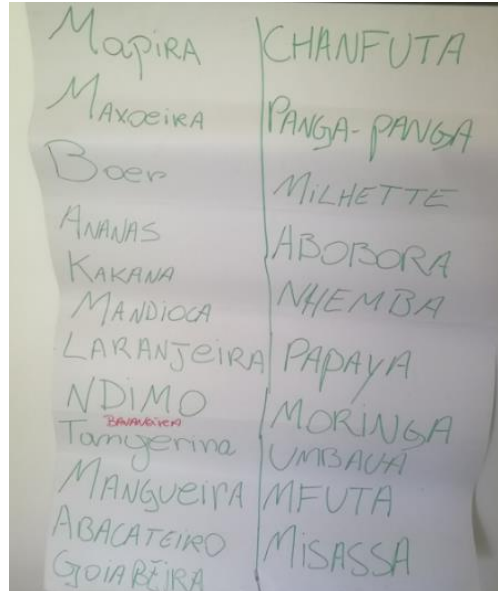 MapiRA
MAxoeiRA
Boer
ANANAS
KAKANA
MANDIOCA
LARANJeiRA
NDiMO
BANANeiRA
Tangerina
MANGUeiRA
ABACATEiRO
GOIABEiRA
CHANFUTA
PANGA-PANGA
MiLHETTE
ABOBORA
NHEMBA
PAPAYA
MORiNGA
MFUTA
MiSASSA